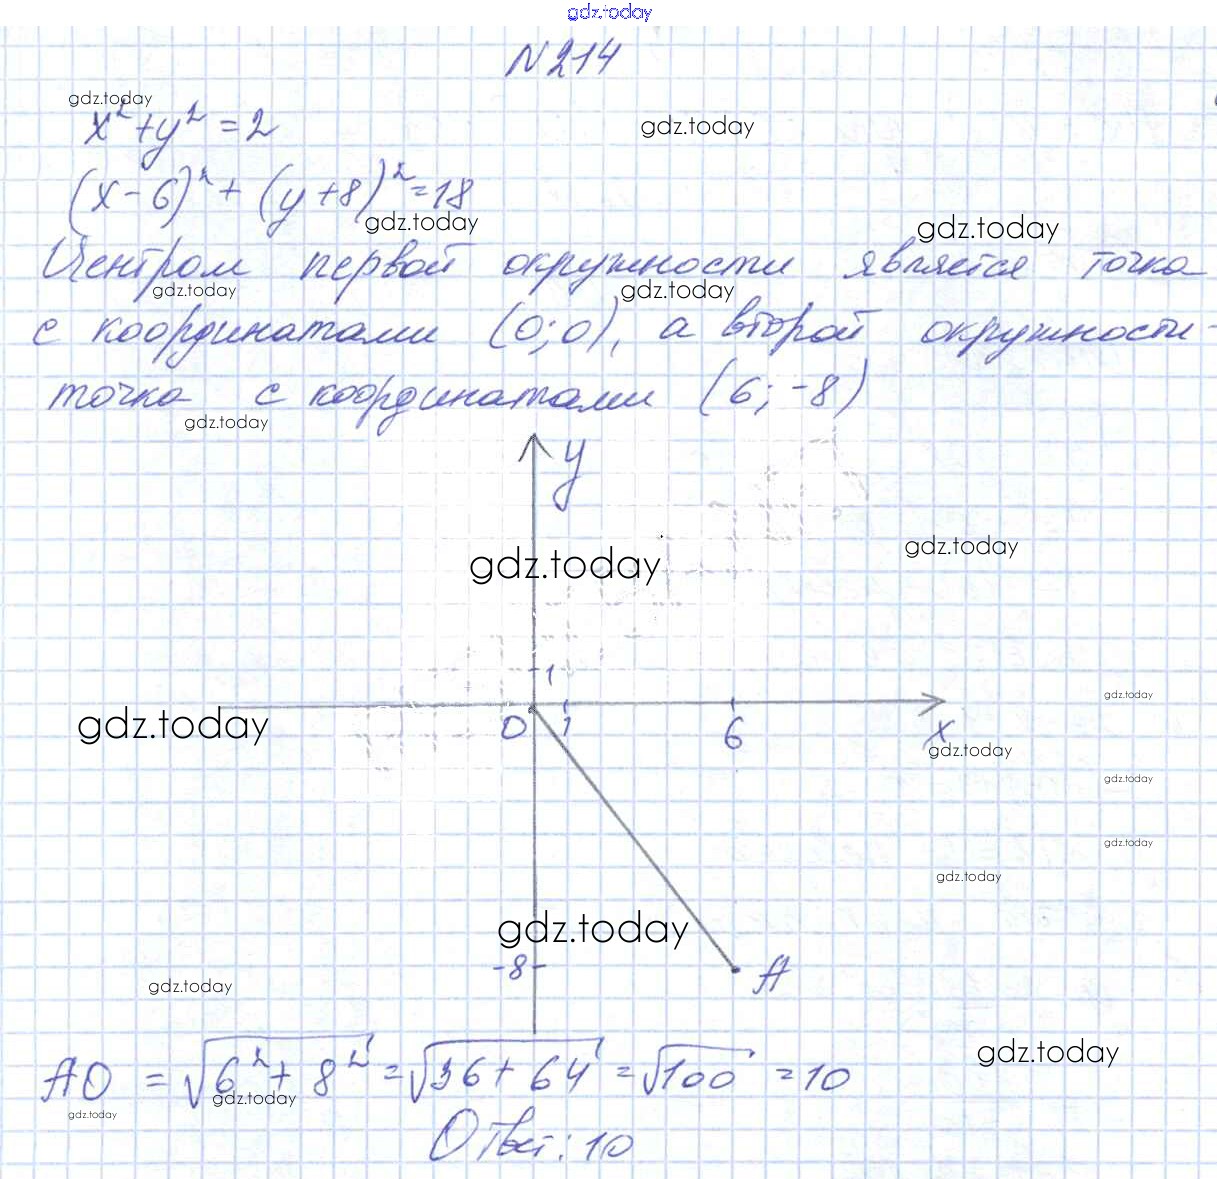 gdz.today
N 214
gdz.today
x² + y² = 2
gdz.today
(x - 6)² + (y + 8)² = 18
gdz.today
gdz.today
Центром первой окружности является точка
gdz.today
gdz.today
с координатами (0; 0), а второй окружности -
точка с координатами (6; -8)
gdz.today
y
gdz.today
gdz.today
1
gdz.today
gdz.today
0 1 6 x
gdz.today
gdz.today
gdz.today
gdz.today
gdz.today
-8 A
gdz.today
gdz.today
AO = √6² + 8² = √36 + 64 = √100 = 10
gdz.today
gdz.today
Ответ: 10